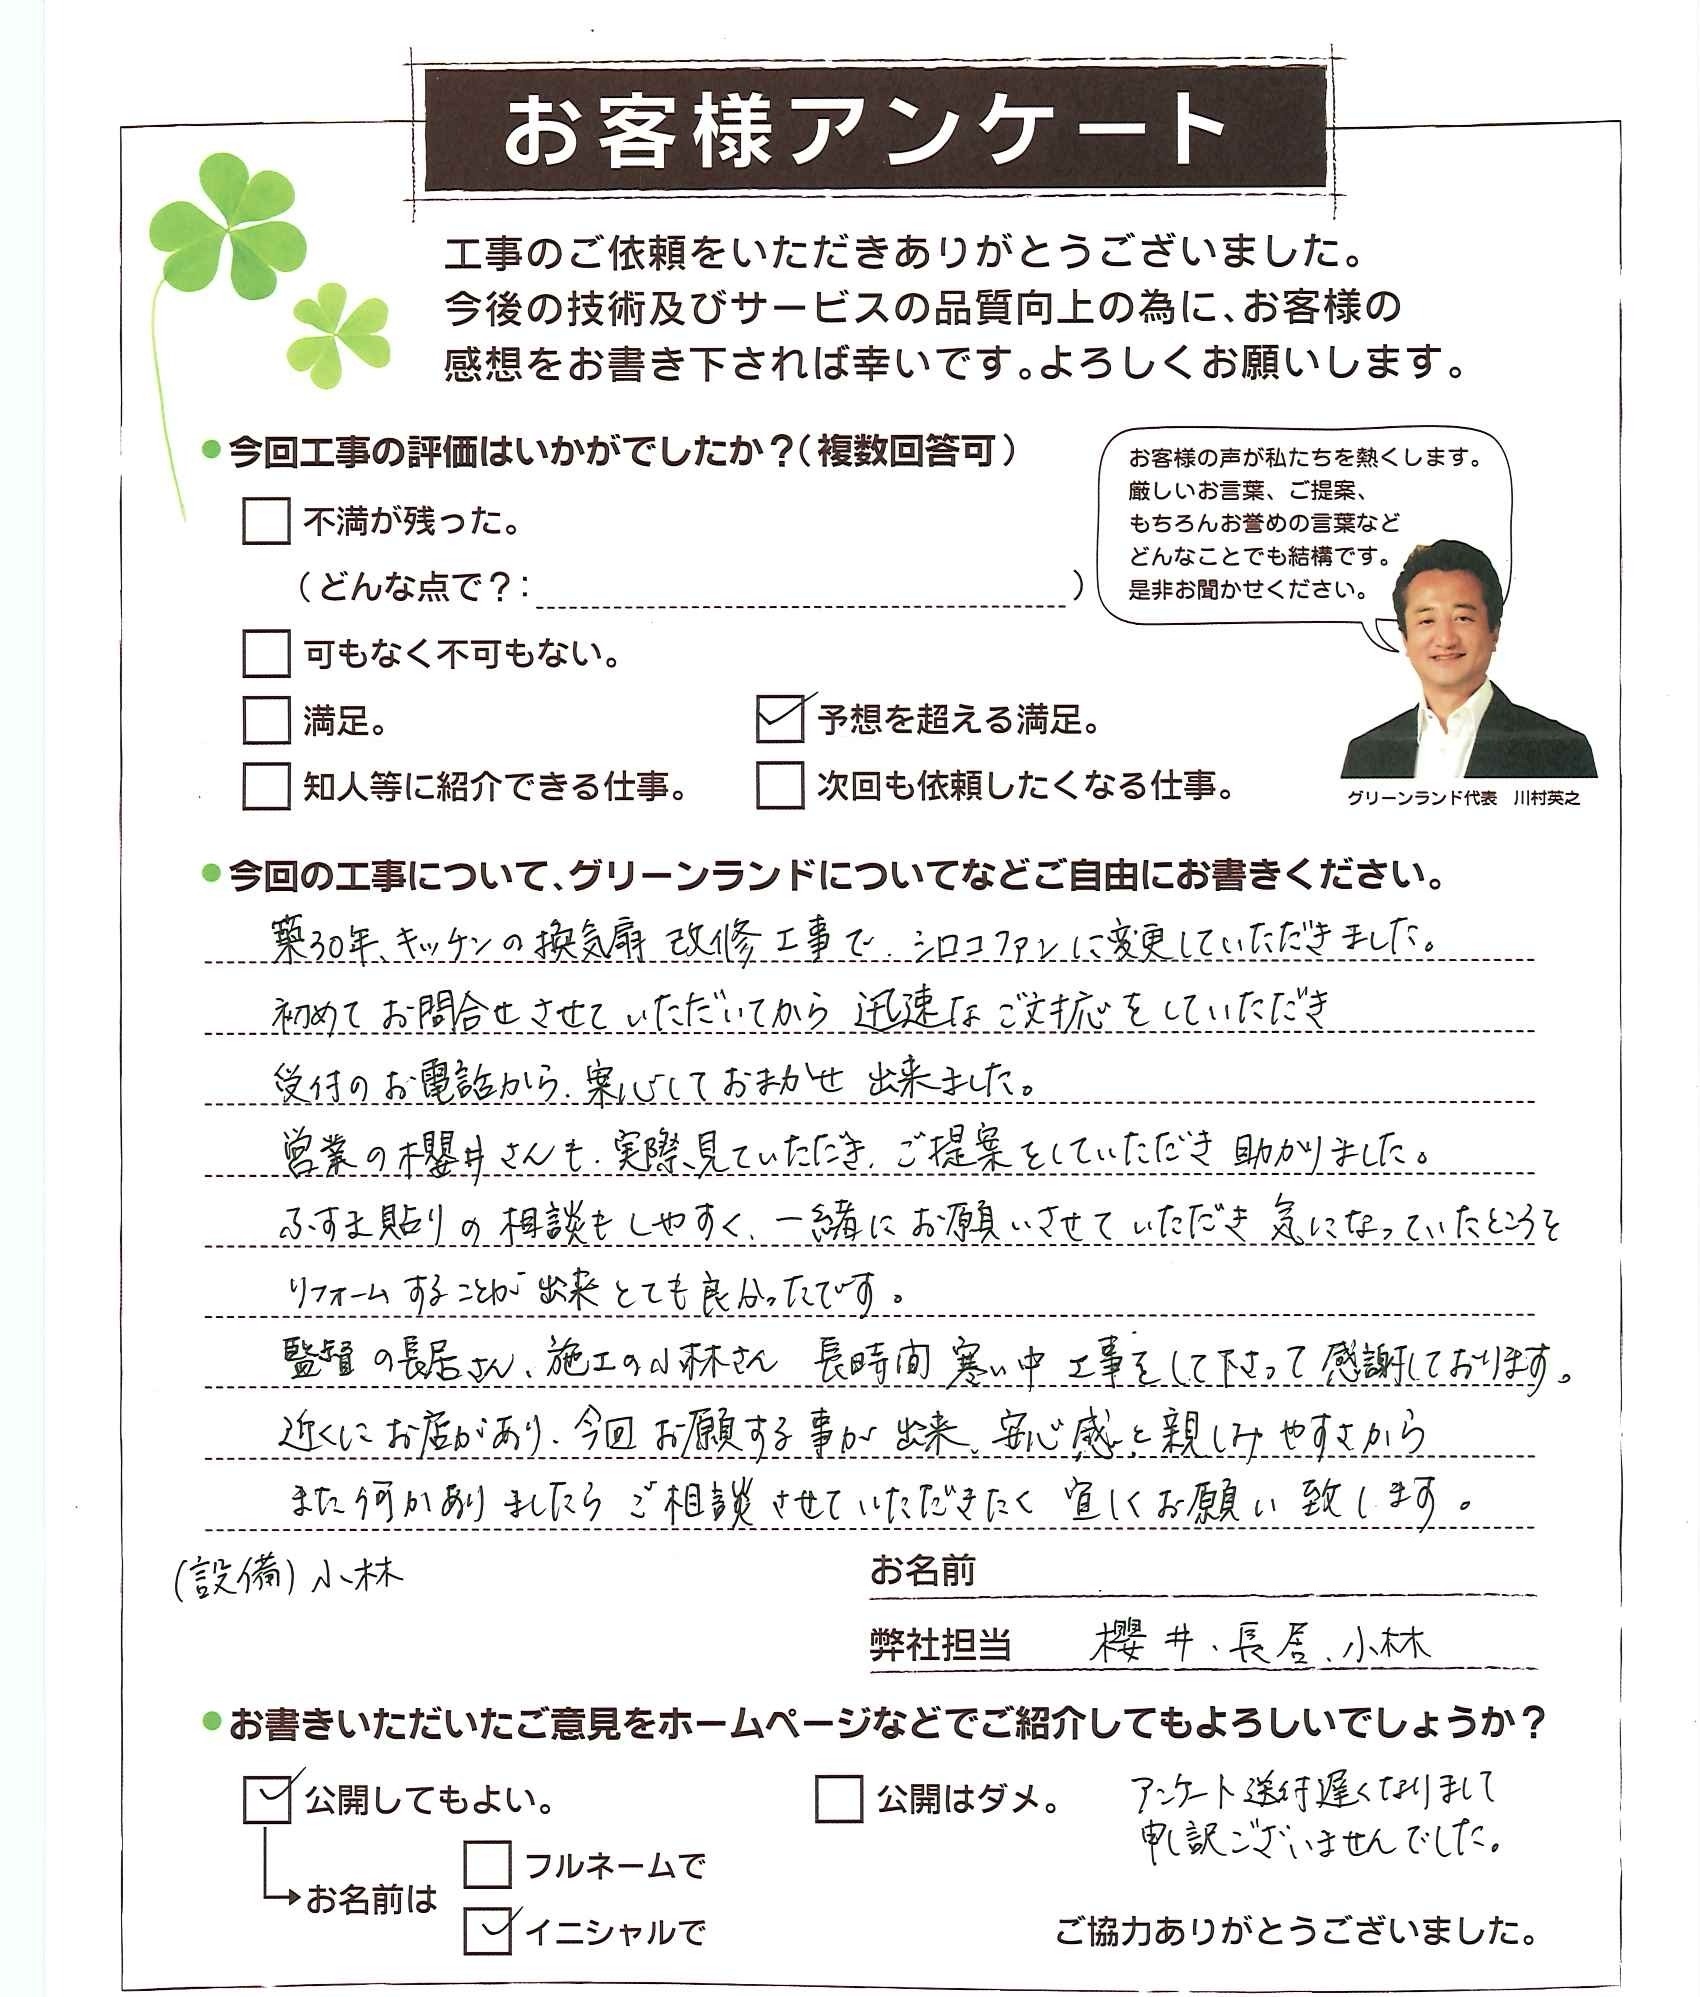 お客様アンケート
工事のご依頼をいただきありがとうございました。
今後の技術及びサービスの品質向上の為に、お客様の
感想をお書き下されば幸いです。よろしくお願いします。
●今回工事の評価はいかがでしたか？（複数回答可）
不満が残った。
（どんな点で？：　　　　　）
可もなく不可もない。
満足。
予想を超える満足。
知人等に紹介できる仕事。
次回も依頼したくなる仕事。
お客様の声が私たちを熱くします。
厳しいお言葉、ご提案、
もちろんお誉めの言葉など
どんなことでも結構です。
是非お聞かせください。
グリーンランド代表　川村英之
●今回の工事について、グリーンランドについてなどご自由にお書きください。
築30年、キッチンの換気扇 改修工事で、シロコファンに変更していただきました。
初めてお問合せさせていただいてから 迅速なご対応をしていただき
受付のお電話から、案心しておまかせ 出来ました。
営業の櫻井さんも、実際、見ていただき、ご提案をしていただき 助かりました。
ふすま貼りの相談もしやすく、一緒にお願いさせていただき 気になっていたところを
リフォームすることが出来とても良かったです。
監督の長居さん、施工の小林さん 長時間 寒い中 工事をして下さって感謝しております。
近くにお店があり、今回お願する事が出来、安心感と親しみやすさから
また何かありましたらご相談させていただきたく 宜しくお願い致します。
(設備)小林
お名前
弊社担当　櫻井、長居、小林
●お書きいただいたご意見をホームページなどでご紹介してもよろしいでしょうか？
公開してもよい。
公開はダメ。
アンケート送付遅くなりまして
申し訳ございませんでした。
お名前は
フルネームで
イニシャルで
ご協力ありがとうございました。